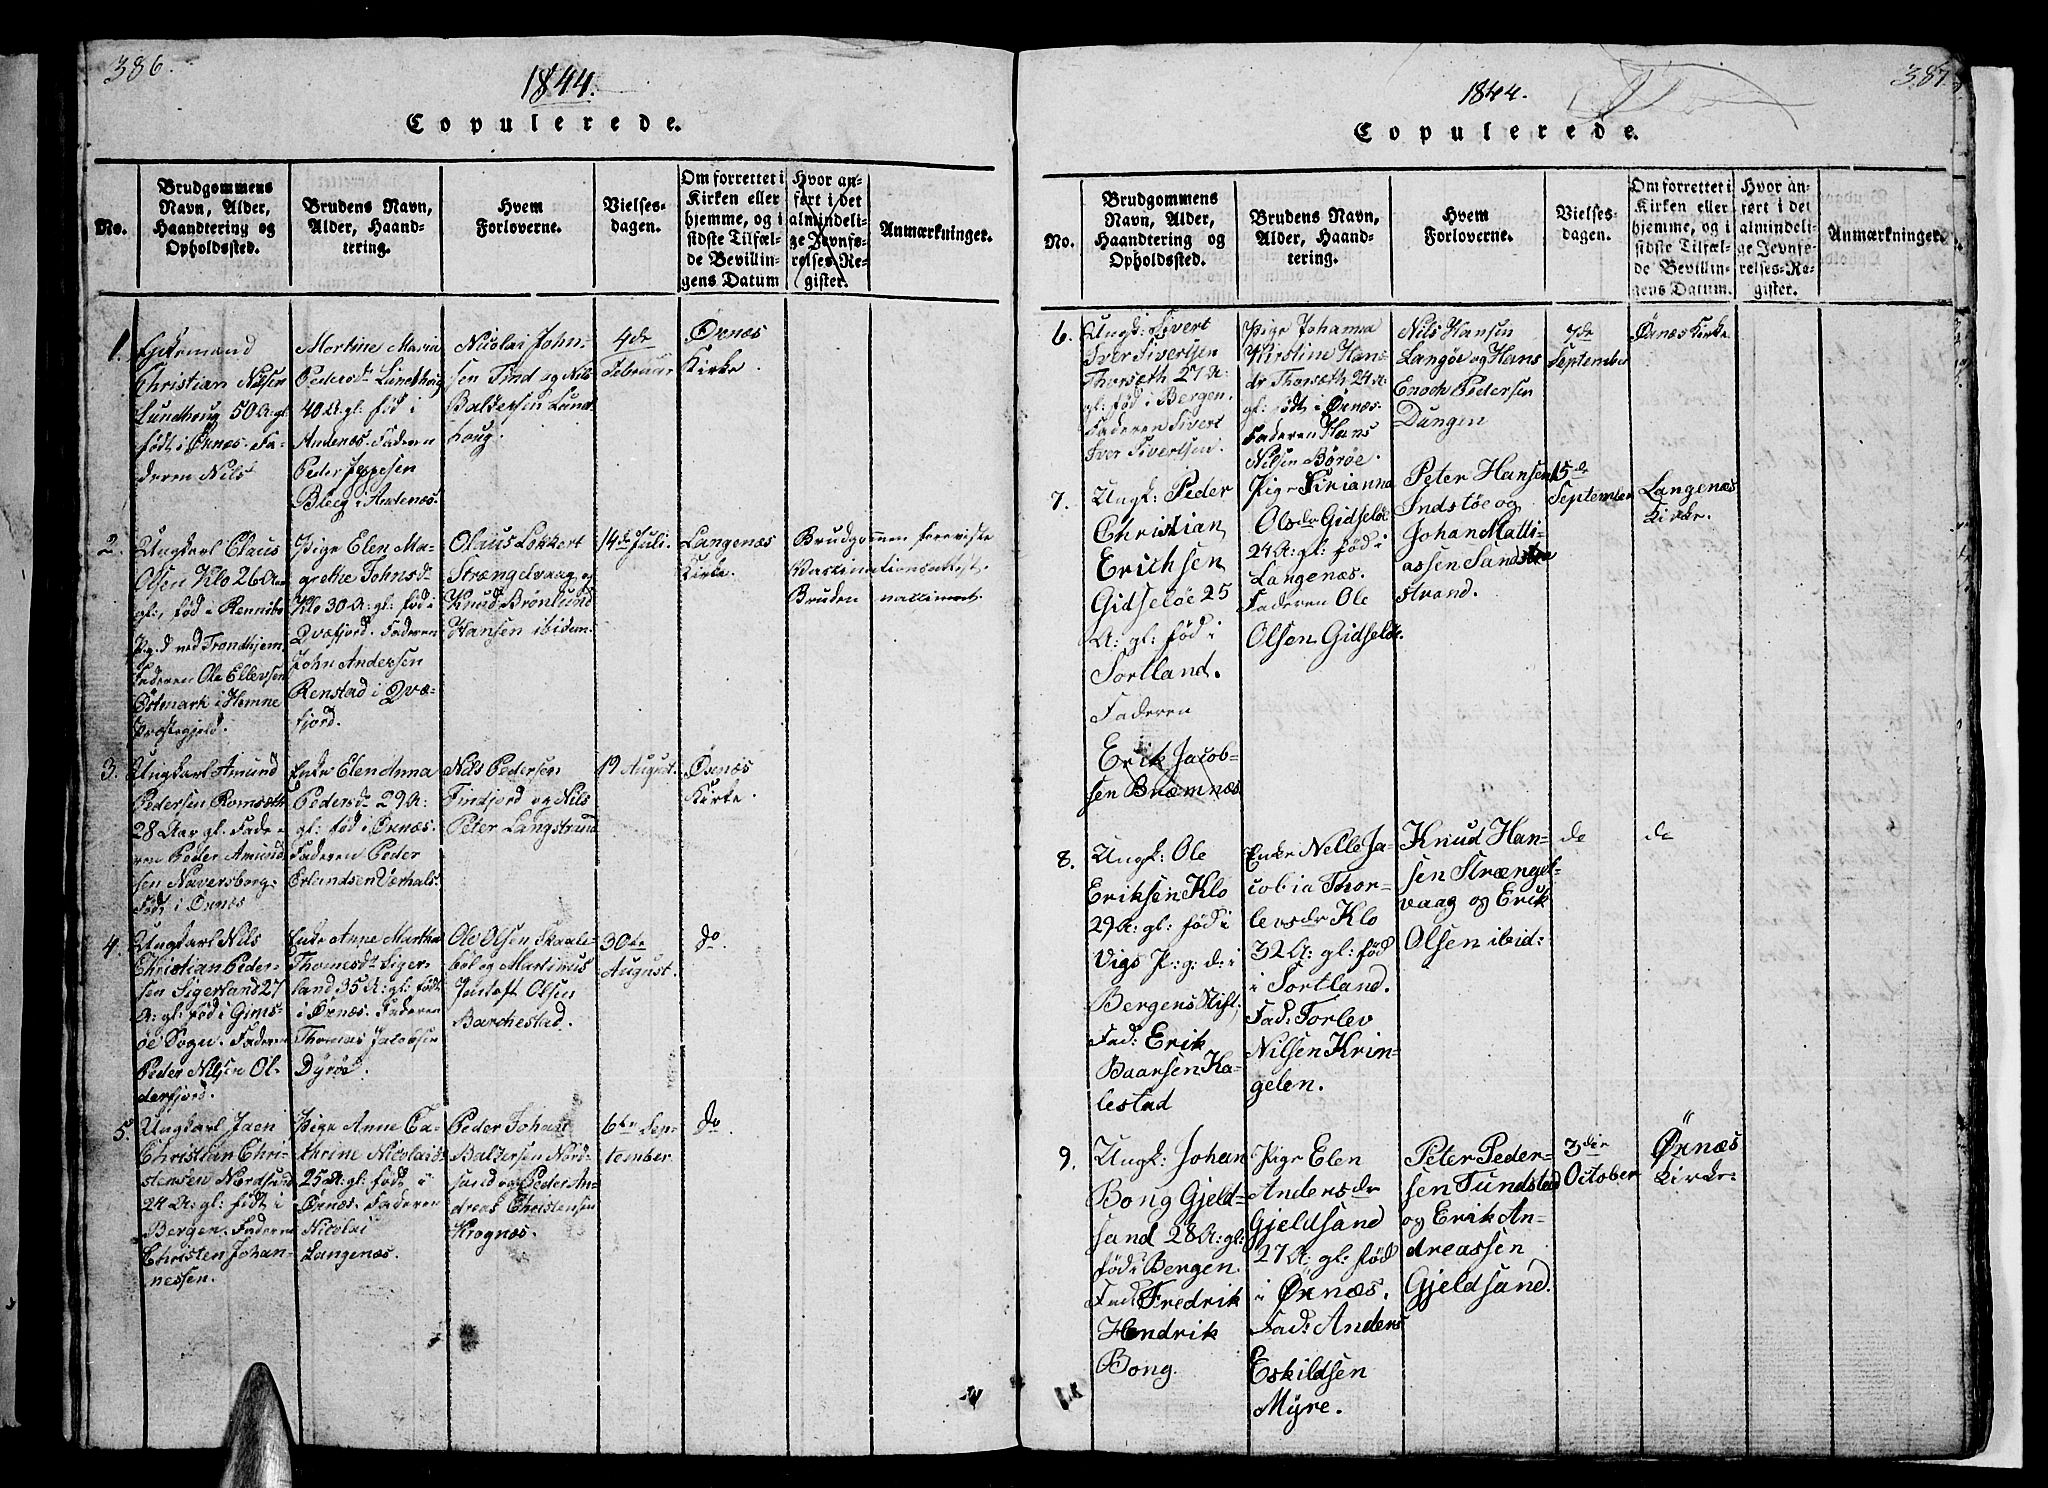 386.
1844.
Copulerede.
No.
Brudgommens
Navn, Alder,
Haandtering og
Opholdssted.
Brudens Navn,
Alder, Haand-
tering.
Hvem
Forloverne.
Vielses-
dagen.
Om forrettet i
Kirken eller
hjemme, og i
sidste Tilfæl-
de Bevillin-
gens Datum
Hvor an-
ført i det
almindeli-
ge Jevnfø-
relses-Re-
gister.
Anmærkninger.
1.
Christian Nilsen
50 A: gl:
født i Örnæs. Fa-
deren Nils
Mortine Maria
Pedersdr
40 A: gl: fød i
Andenæs. Faderen
Peder Jeppesen
Bleeg i Andenæs.
Nicolai John-
sen Tind og Nils
Baltzersen Lund-
houg.
4de
Februar
Örnæs
Kirke.
2.
Ungkarl Claus
Olsen Klo 26 Aar
gl:, fød i
P.g.d ved Trondhjem.
Faderen Ole Ellevsen
Østmark i Hemne
Præstegjeld.
Pige Elen Ma-
grethe Johnsdr
Klo 30 A: gl: fød i
Qvæfjord. Faderen
John Andersen
Renstad i Qvæ-
fjord.
Olaus Lokkert
Strængelvaag og
Knud Brönlund
Hansen ibidem.
14de Juli.
Langenæs
Kirke.
Brudgommen foreviste
Vaccinationsattest.
Bruden
3.
Ungkarl Amund
Pedersen Romsæth
28 Aar gl. Fade-
ren Peder Amund-
sen Naversberg.
Født i Örnæs
Enke Elen Anna
Pedersdr 29 A:
gl: fød i Örnæs.
Faderen Peder
Erlandsen Værhals.
Nils Pedersen
Finfjord og Nils
Peter Langstrand
19 August.
Örnæs
Kirke
4.
Ungkarl Nils
Christian Peder-
sen Sigerland 27
A: gl: fød i Gims-
öe Sogn. Faderen
Peder Nilsen Ol-
derfjord.
Enke Anne Martha
Thomesdr Siger-
land 35 A: gl: født
i Örnæs. Faderen
Thomas Jacobsen
Dyröe.
Ole Olsen Skaale-
böl og Martinus
Justest Olsen
Barkestad.
30te
August.
do.
5.
Ungkarl Jaen
Christian Chri-
stensen Nordsand
24 A: gl: født i
Bergen. Faderen
Christen Johan-
nessen.
Pige Anne Ca-
thrine Nicolaisdr
25 A: gl: født i
Örnæs. Faderen
Nicolai
Langenæs.
Peder Johan
Baltzersen Nord-
sand og Peder An-
dreas Christensen
Krognæs.
6te Sep-
tember
do.
387.
1844.
Copulerede.
No.
Brudgommens
Navn, Alder,
Haandtering og
Opholdssted.
Brudens Navn,
Alder, Haand-
tering.
Hvem
Forloverne.
Vielses-
dagen.
Om forrettet i
Kirken eller
hjemme, og i
sidste Tilfæl-
de Bevillin-
gens Datum.
Hvor an-
ført i det
almindeli-
ge Jevnfø-
relses-Re-
gister.
Anmærkninger.
6.
Ungk: Sivert
Iver Sivertsen
Thorsæth 27 A:
gl: fød i Bergen.
Faderen Sivert
Iver Sivertsen.
Pige Johanna
Kirstine Hans-
dr Thorsæth 24 A:
gl: født i Örnæs.
Faderen Hans
Nilsen Böröe.
Nils Hansen
Langöe og Hans
Enoch Pedersen
Dungen
7de
September
Örnæs Kirke
7.
Ungk: Peder
Christian
Erichsen
Gidselöe 25
A: gl: fød i
Sortland.
Faderen
Erik Jacob-
sen Bræmnæs
Pige Sirianna
Olsdr Gidselöe
24 A: gl: fød i
Langenæs.
Faderen Ole
Olsen Gidselöe.
Peter Hansen
Indstöe og
Johan Matti-
assen Sand
strand.
15de
September
Langenæs
Kirke.
8.
Ungk: Ole
Eriksen Klo
29 A: gl: fød i
Vigs P: g: d: i
Bergens Stift,
Fad: Erik
Baarsen Ka-
lestad
Enke Nelle Ja-
cobia Thor-
levsdr Klo
32 A: gl: fød
i Sortland.
Fad: Torlev
Nilsen Krin-
gelen.
Knud Han-
sen Strængel-
vaag og Erik
Olsen ibid:
do
do
9.
Ungk: Johan
Bong Gjeld-
sand 28 A: gl:
fød i Bergen.
Fad: Fredrik
Hendrik
Bong.
Pige Elen
Andersdr
Gjeldsand
27 A: gl: fød
i Örnæs.
Fad: Anders
Eskildsen
Myre.
Peter Peder-
sen Tundstad
og Erik An-
dreassen
Gjeldsand.
3die
October
Örnæs
Kirke.